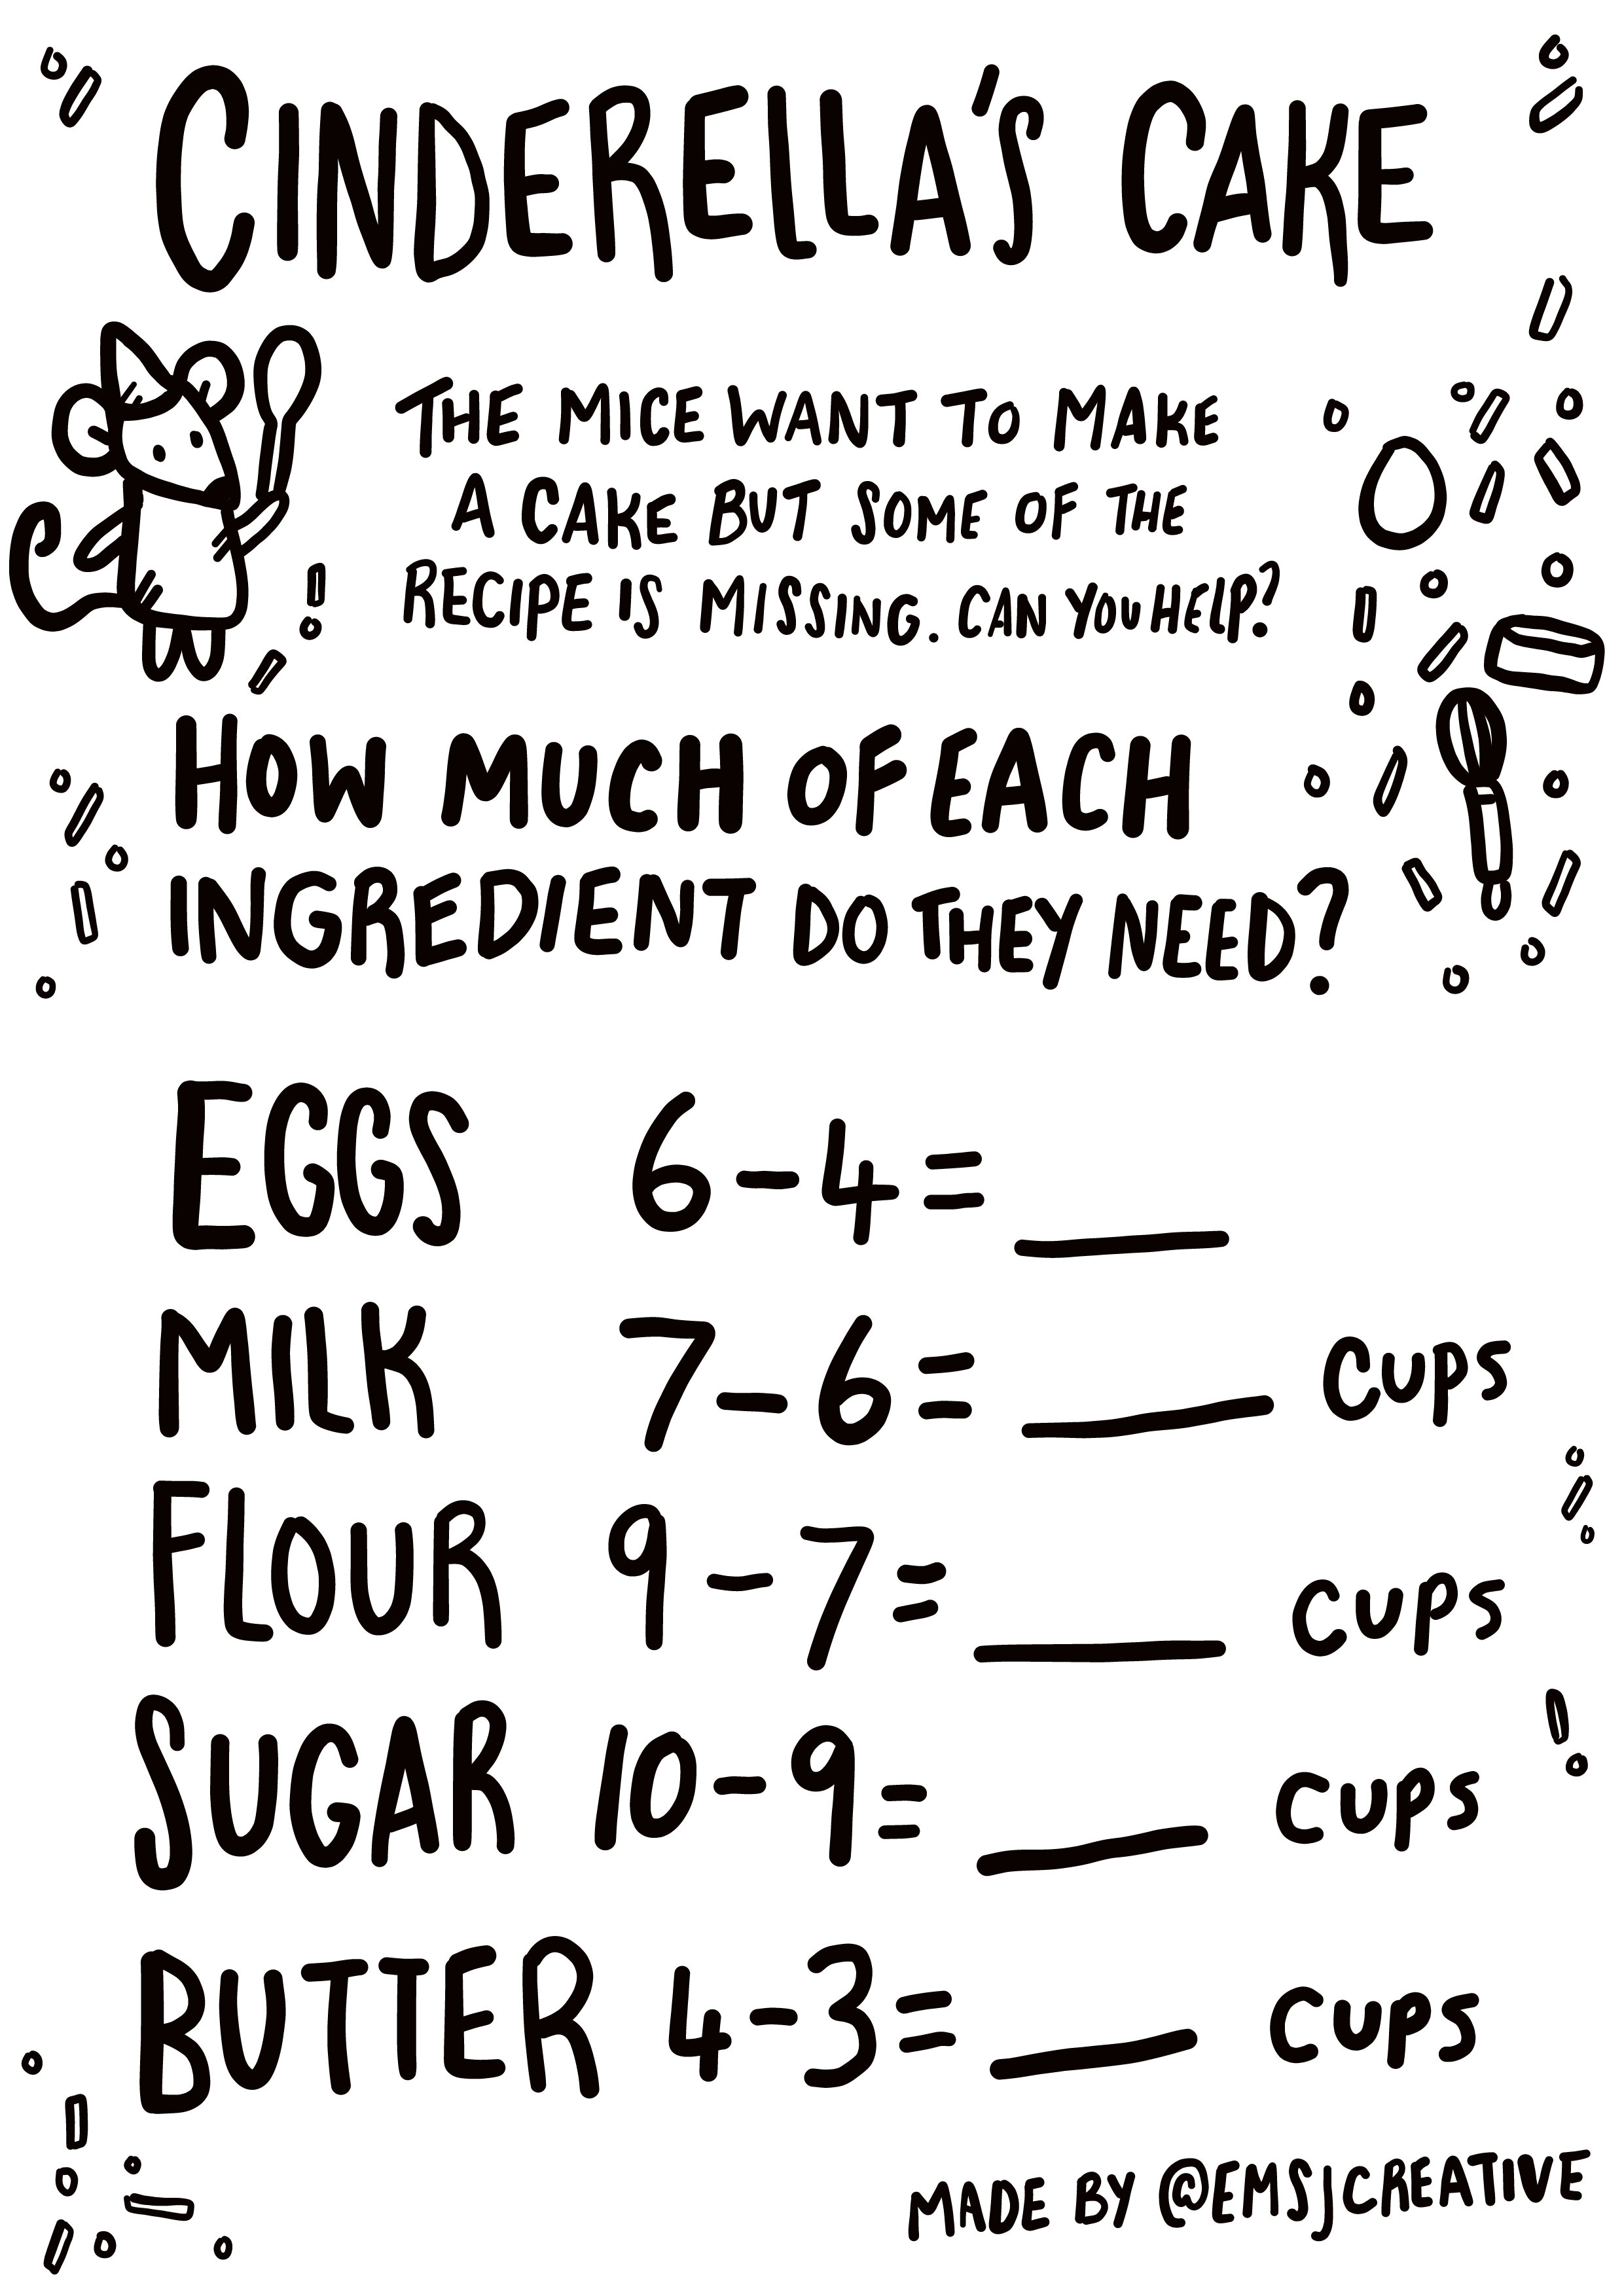 CINDERELLA'S CAKE
THE MICE WANT TO MAKE
A CAKE BUT SOME OF THE
RECIPE IS MISSING. CAN YOU HELP?
HOW MUCH OF EACH
INGREDIENT DO THEY NEED?
EGGS 6-4= ___
MILK 7-6= ___ CUPS
FLOUR 9-7= ___ CUPS
SUGAR 10-9= ___ CUPS
BUTTER 4-3= ___ CUPS
MADE BY @EMSJCREATIVE